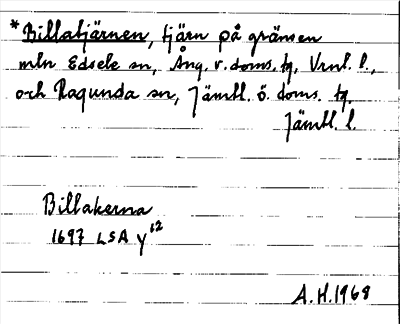 *Billatjärnen, tjärn på gränsen
mln Edsele sn, Ång. v. doms. tg, Vrnl. l.,
och Ragunda sn, Jämtl. ö. doms. tg.
Jämtl. l.
Billakerna
1697 LSA Y12
A.H. 1968